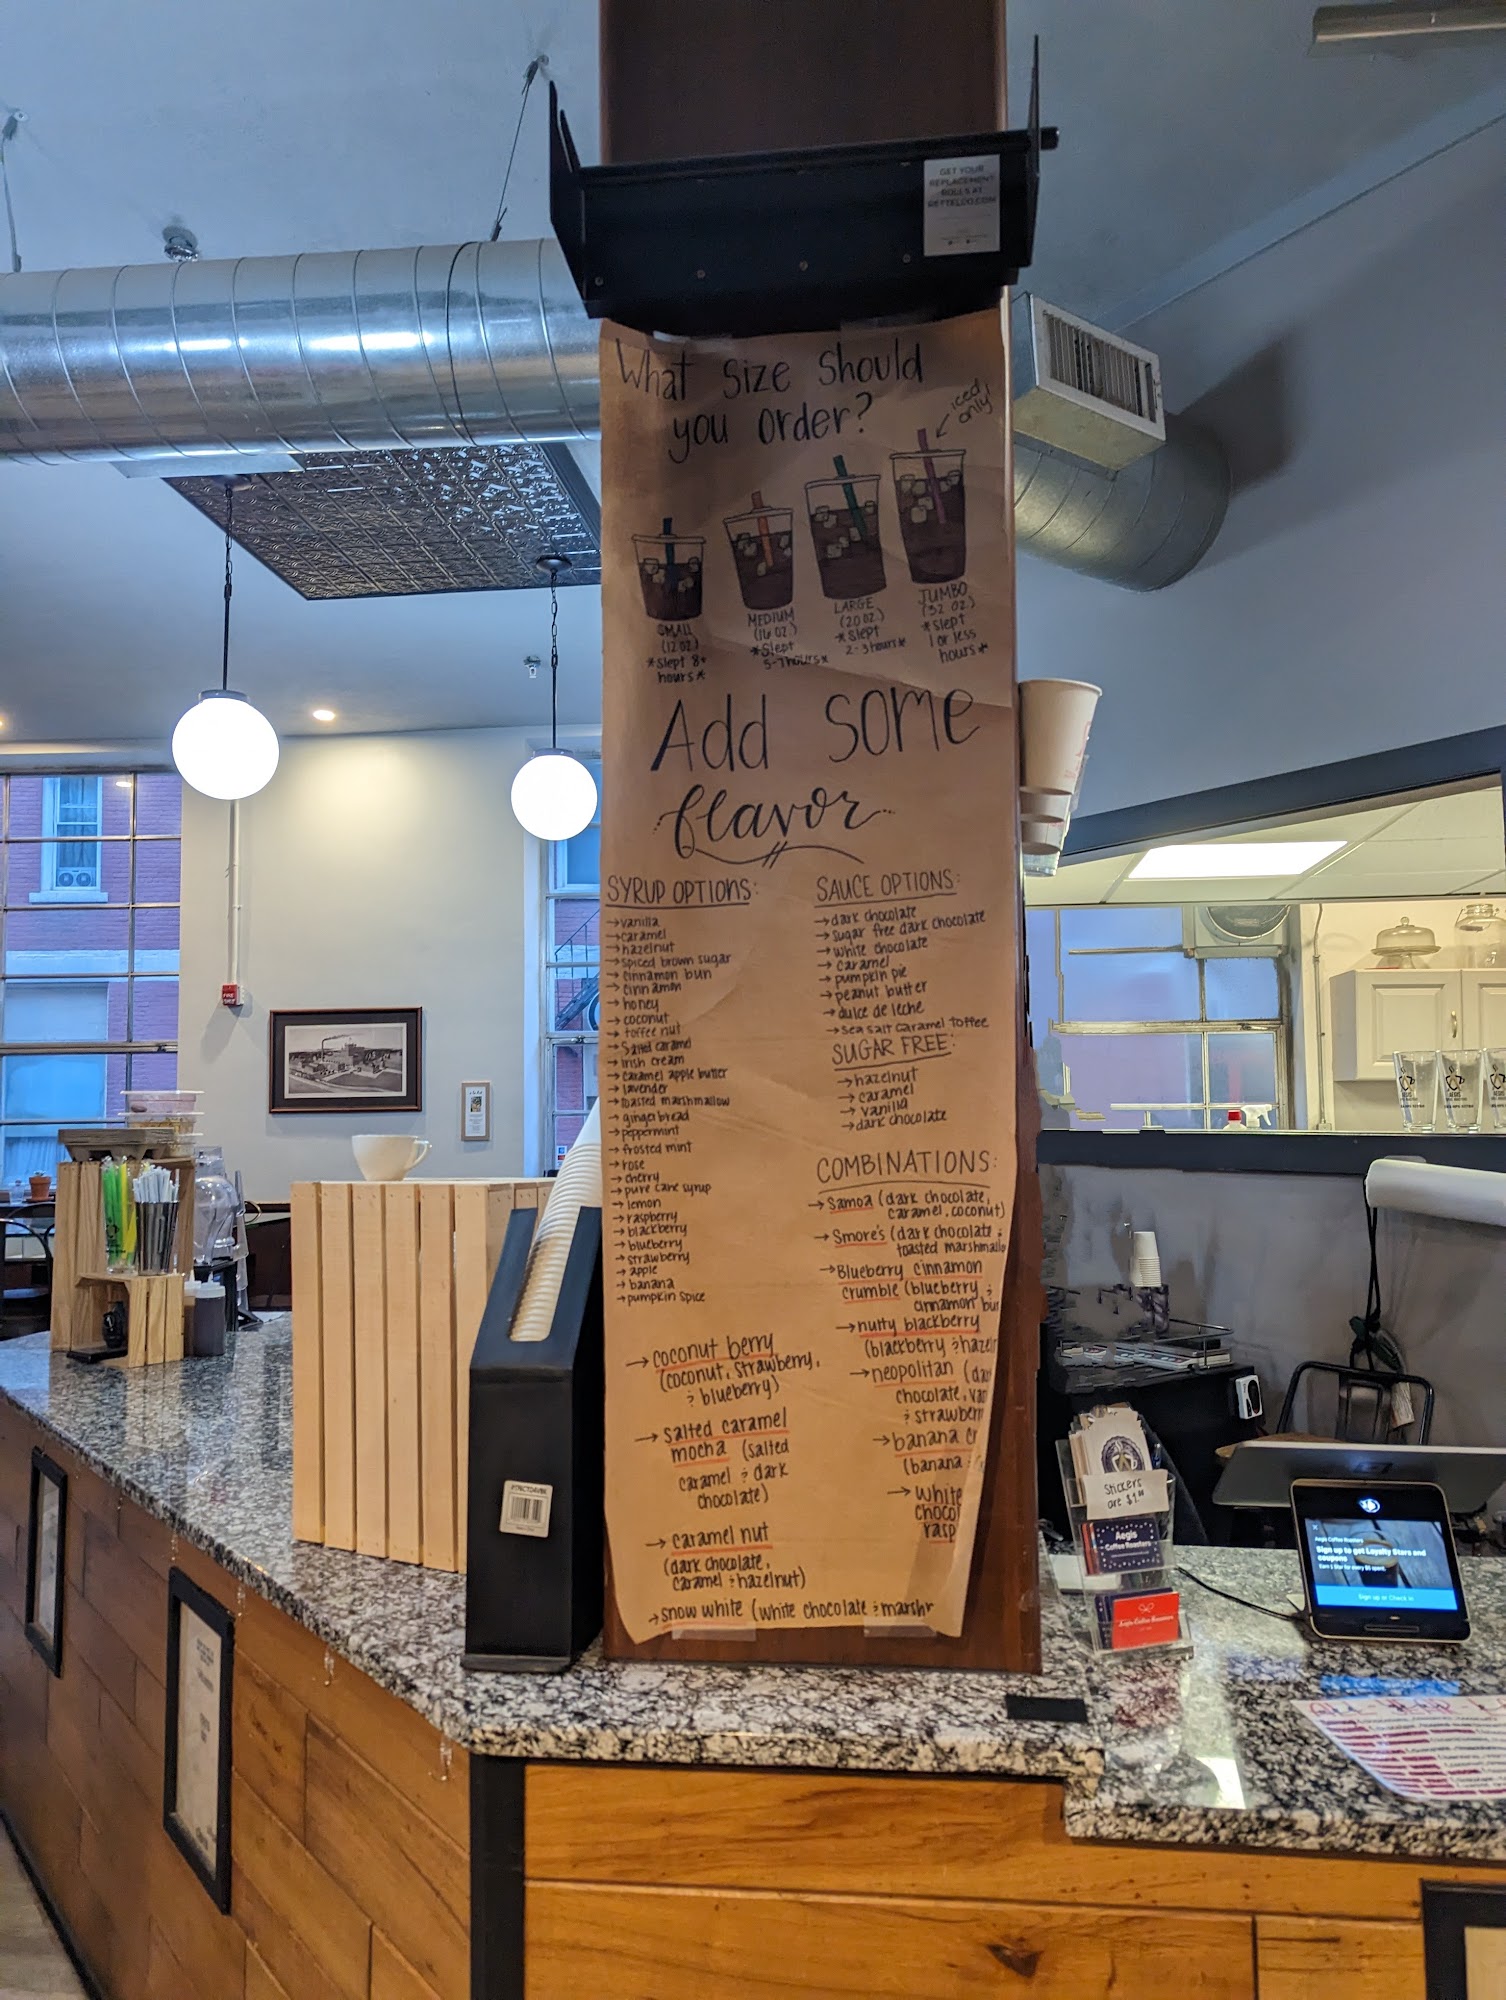 GET YOUR
REPLACEMENT
ROLLS AT
What Size Should
you order?
iced
only!
SMALL
(12 oz.)
*slept 8+
hours*
MEDIUM
(16 oz.)
*Slept
5-7 hours*
LARGE
(20 oz.)
*Slept
2-3 hours*
JUMBO
(32 oz.)
*Slept
1 or less
hours*
Add some
flavor
SYRUP OPTIONS:
→vanilla
→caramel
→hazelnut
→spiced brown sugar
→cinnamon bun
→cinnamon
→honey
→coconut
→toffee nut
→Salted caramel
→irish cream
→caramel apple butter
→lavender
→toasted marshmallow
→gingerbread
→peppermint
→frosted mint
→rose
→cherry
→pure cane syrup
→lemon
→raspberry
→blackberry
→blueberry
→strawberry
→apple
→banana
→pumpkin spice
SAUCE OPTIONS:
→dark chocolate
→sugar free dark chocolate
→white chocolate
→caramel
→pumpkin pie
→peanut butter
→dulce de leche
→sea salt caramel toffee
SUGAR FREE:
→hazelnut
→caramel
→vanilla
→dark chocolate
COMBINATIONS:
→Samoa (dark chocolate,
caramel, coconut)
→Smore's (dark chocolate &
toasted marshmallo
→Blueberry cinnamon
crumble (blueberry &
cinnamon bun
→nutty blackberry
(blackberry & hazel
→neopolitan (dar
chocolate, van
& strawberr
→banana cr
(banana &
→white
chocol
rasp
→coconut berry
(coconut, strawberry,
& blueberry)
→salted caramel
mocha (salted
caramel & dark
chocolate)
→caramel nut
(dark chocolate,
caramel & hazelnut)
→snow white (white chocolate & marshr
Stickers
are $1.00
Aegis
Coffee Roasters
Aegis Coffee Roasters
Aegis Coffee Roasters
Sign up to get Loyalty Stars and
coupons
Earn 1 Star for every $5 spent.
Sign up or Check in
AEGIS
AEGIS
AEGIS
FIRE